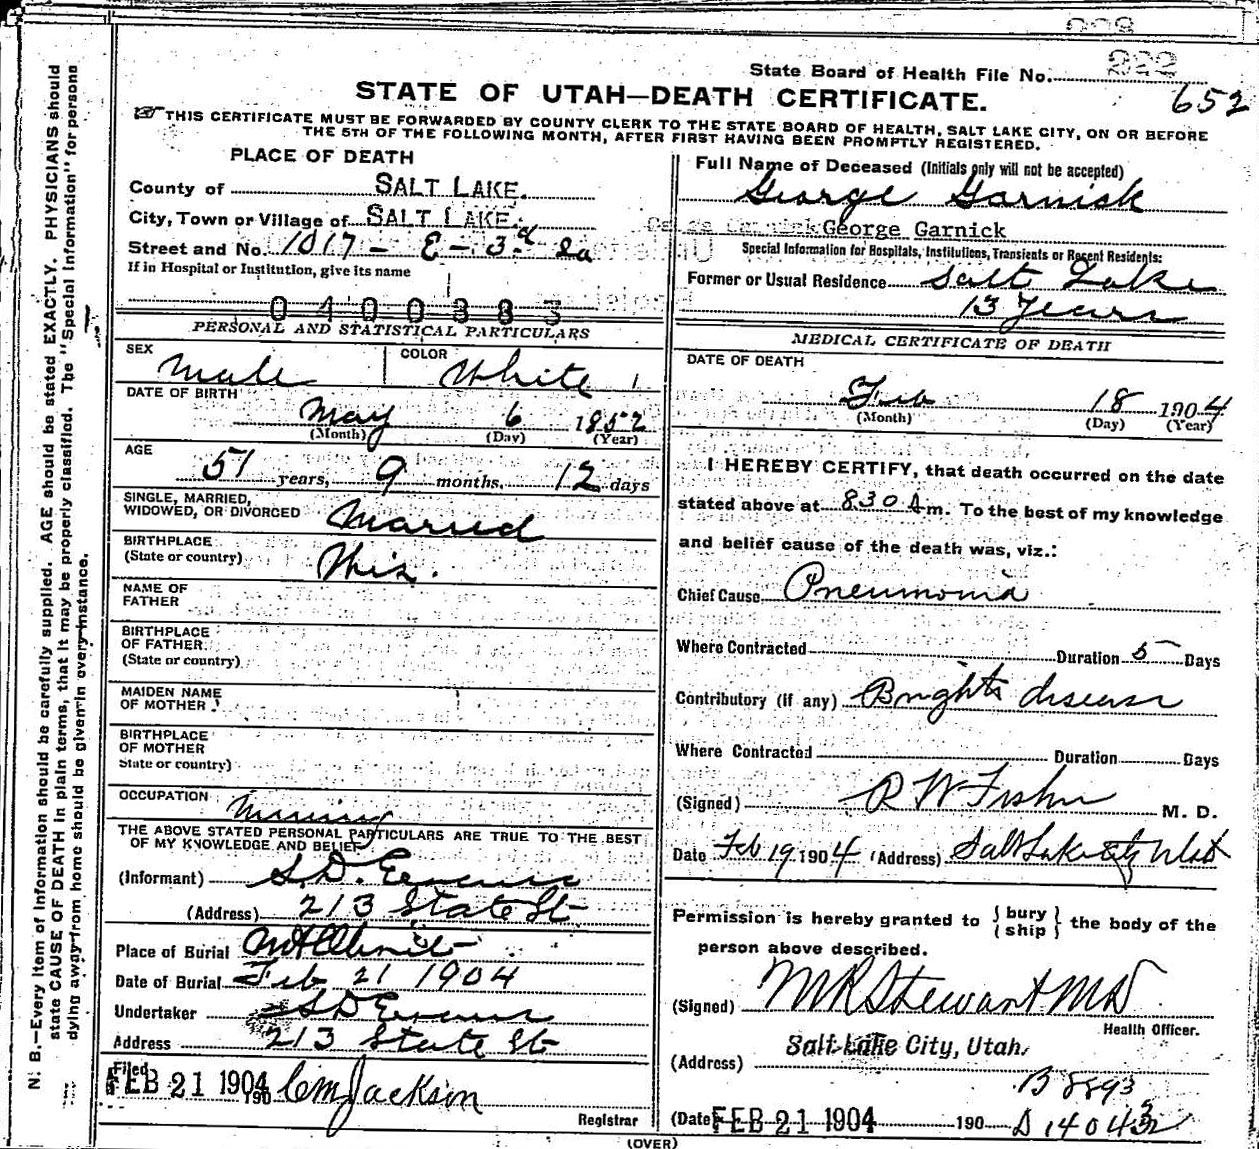 State Board of Health File No. 222
652
STATE OF UTAH—DEATH CERTIFICATE.
THIS CERTIFICATE MUST BE FORWARDED BY COUNTY CLERK TO THE STATE BOARD OF HEALTH, SALT LAKE CITY, ON OR BEFORE
THE 5TH OF THE FOLLOWING MONTH, AFTER FIRST HAVING BEEN PROMPTLY REGISTERED.
PLACE OF DEATH
County of SALT LAKE.
City, Town or Village of SALT LAKE.
Street and No. 1017 - E - 3rd So
If in Hospital or Institution, give its name
0400383
PERSONAL AND STATISTICAL PARTICULARS
SEX Male
COLOR White
DATE OF BIRTH
May 6 1852
(Month) (Day) (Year)
AGE
51 years, 9 months, 12 days
SINGLE, MARRIED,
WIDOWED, OR DIVORCED Married
BIRTHPLACE
(State or country) Wis.
NAME OF
FATHER
BIRTHPLACE
OF FATHER
(State or country)
MAIDEN NAME
OF MOTHER
BIRTHPLACE
OF MOTHER
State or country)
OCCUPATION Mining
THE ABOVE STATED PERSONAL PARTICULARS ARE TRUE TO THE BEST
OF MY KNOWLEDGE AND BELIEF
(Informant) S.D. Evans
(Address) 213 State St
Place of Burial Mt Olivet
Date of Burial Feb 21 1904
Undertaker S D Evans
Address 213 State St
Filed
FEB 21 1904 190 C M Jackson
Registrar
Full Name of Deceased (Initials only will not be accepted)
George Garnick
George Garnick
Special Information for Hospitals, Institutions, Transients or Recent Residents:
Former or Usual Residence Salt Lake
13 Years
MEDICAL CERTIFICATE OF DEATH
DATE OF DEATH
Feb 18 1904
(Month) (Day) (Year)
I HEREBY CERTIFY, that death occurred on the date
stated above at 830 A m. To the best of my knowledge
and belief cause of the death was, viz.:
Chief Cause Pneumonia
Where Contracted Duration 5 Days
Contributory (if any) Brights disease
Where Contracted Duration Days
(Signed) R W Fisher M. D.
Date Feb 19 1904 (Address) Salt Lake City Utah
Permission is hereby granted to {bury
ship} the body of the
person above described.
(Signed) M R Stewart MD
Health Officer.
(Address) Salt Lake City, Utah.
B 8893
(Date FEB 21 1904 190 D 14043
(OVER)
N. B.—Every item of information should be carefully supplied. AGE should be stated EXACTLY. PHYSICIANS should
state CAUSE OF DEATH in plain terms, that it may be properly classified. The "Special Information" for persons
dying away from home should be given in every instance.